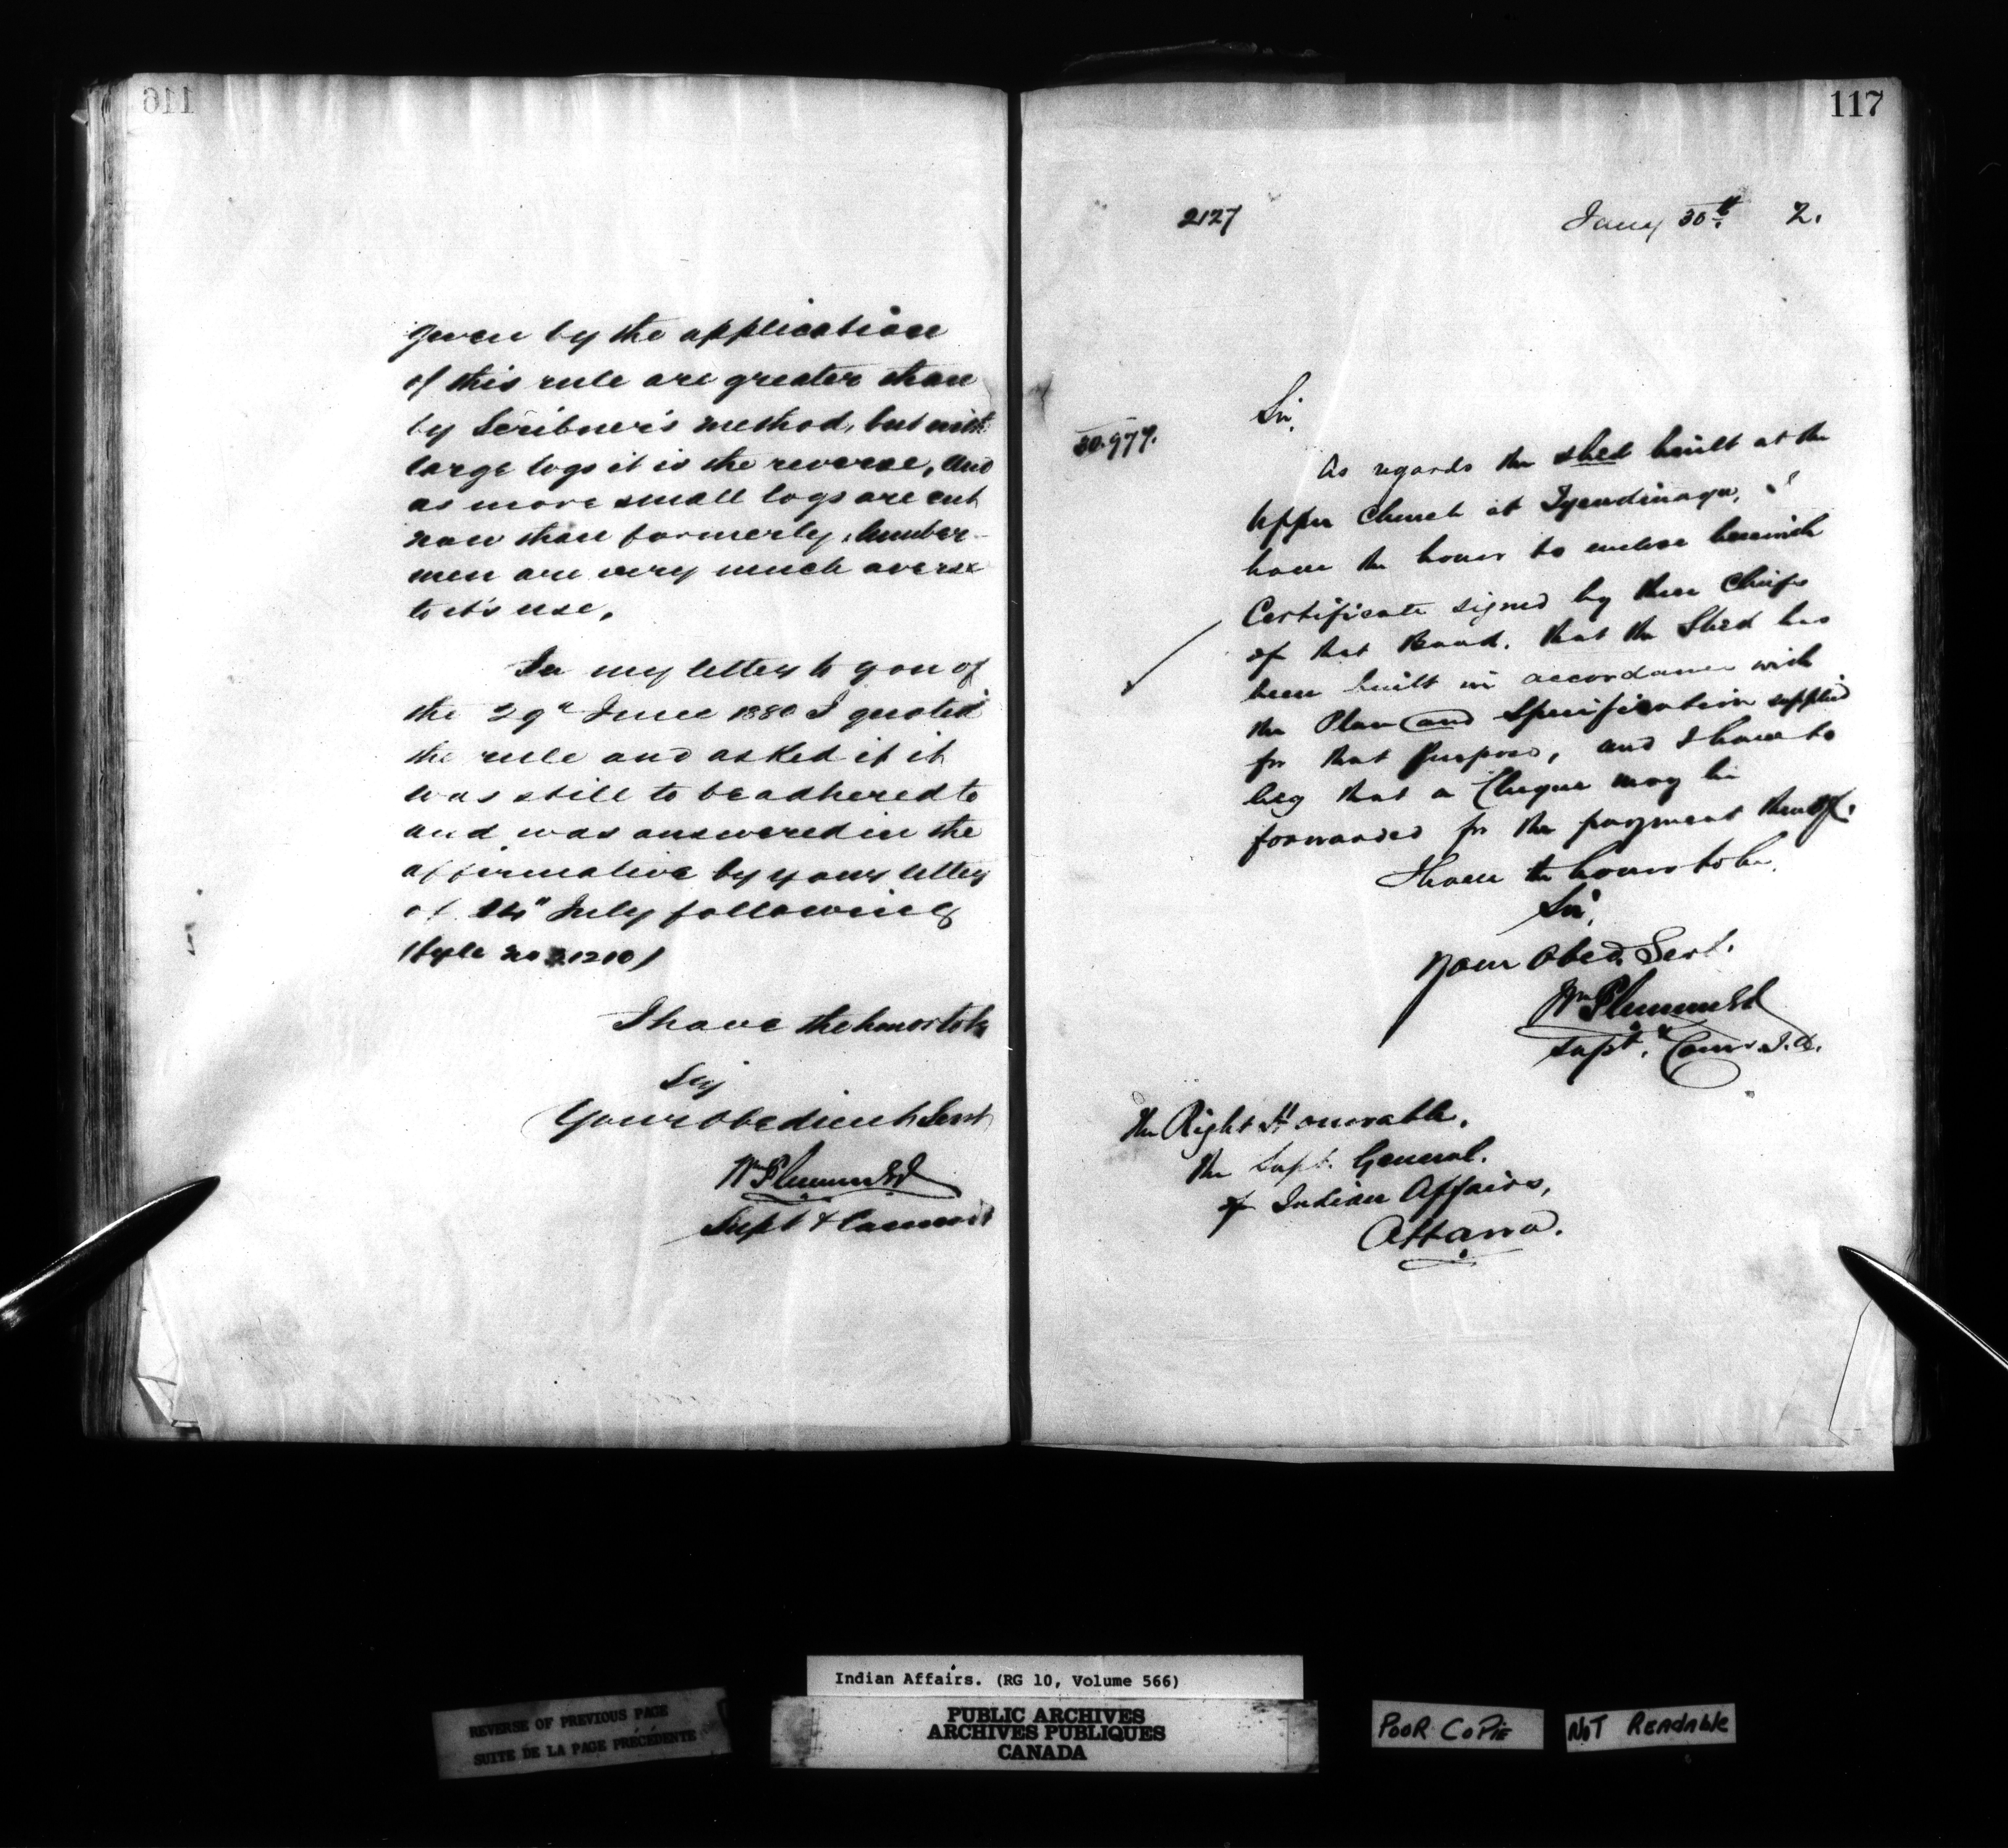 116
given by the application
of this rule are greater than
by Scribner's method, but with
large logs it is the reverse, and
as more small logs are cut
now than formerly, lumber-
men are very much averse
to it's use.
In my letter to you of
the 29" June 1880 I quoted
the rule and asked if it
was still to be adhered to
and was answered in the
affirmative by your letter
of 14" July following
I have the honor to be
Sir
Your obedient Servt
Wm Plummer
Supt & Commr
117
2127
Jany 30th 2.
30.977.
Sir,
As regards the shed built at the
Upper Church at Tyendinaga, I
have the honor to enclose herewith
Certificate signed by three Chiefs
of that Band, that the Shed has
been built in accordance with
the Plan and Specification supplied
for that purpose, and I have to
beg that a Cheque may be
forwarded for the payment thereof.
I have the honor to be,
Sir,
Your Obed. Servt.
Wm Plummer
Supt. & Comr I.A.
The Right Honorable,
The Supt. General.
of Indian Affairs,
Ottawa.
Indian Affairs. (RG 10, Volume 566)
REVERSE OF PREVIOUS PAGE
SUITE DE LA PAGE PRÉCÉDENTE
PUBLIC ARCHIVES
ARCHIVES PUBLIQUES
CANADA
POOR COPIE
NOT READABLE